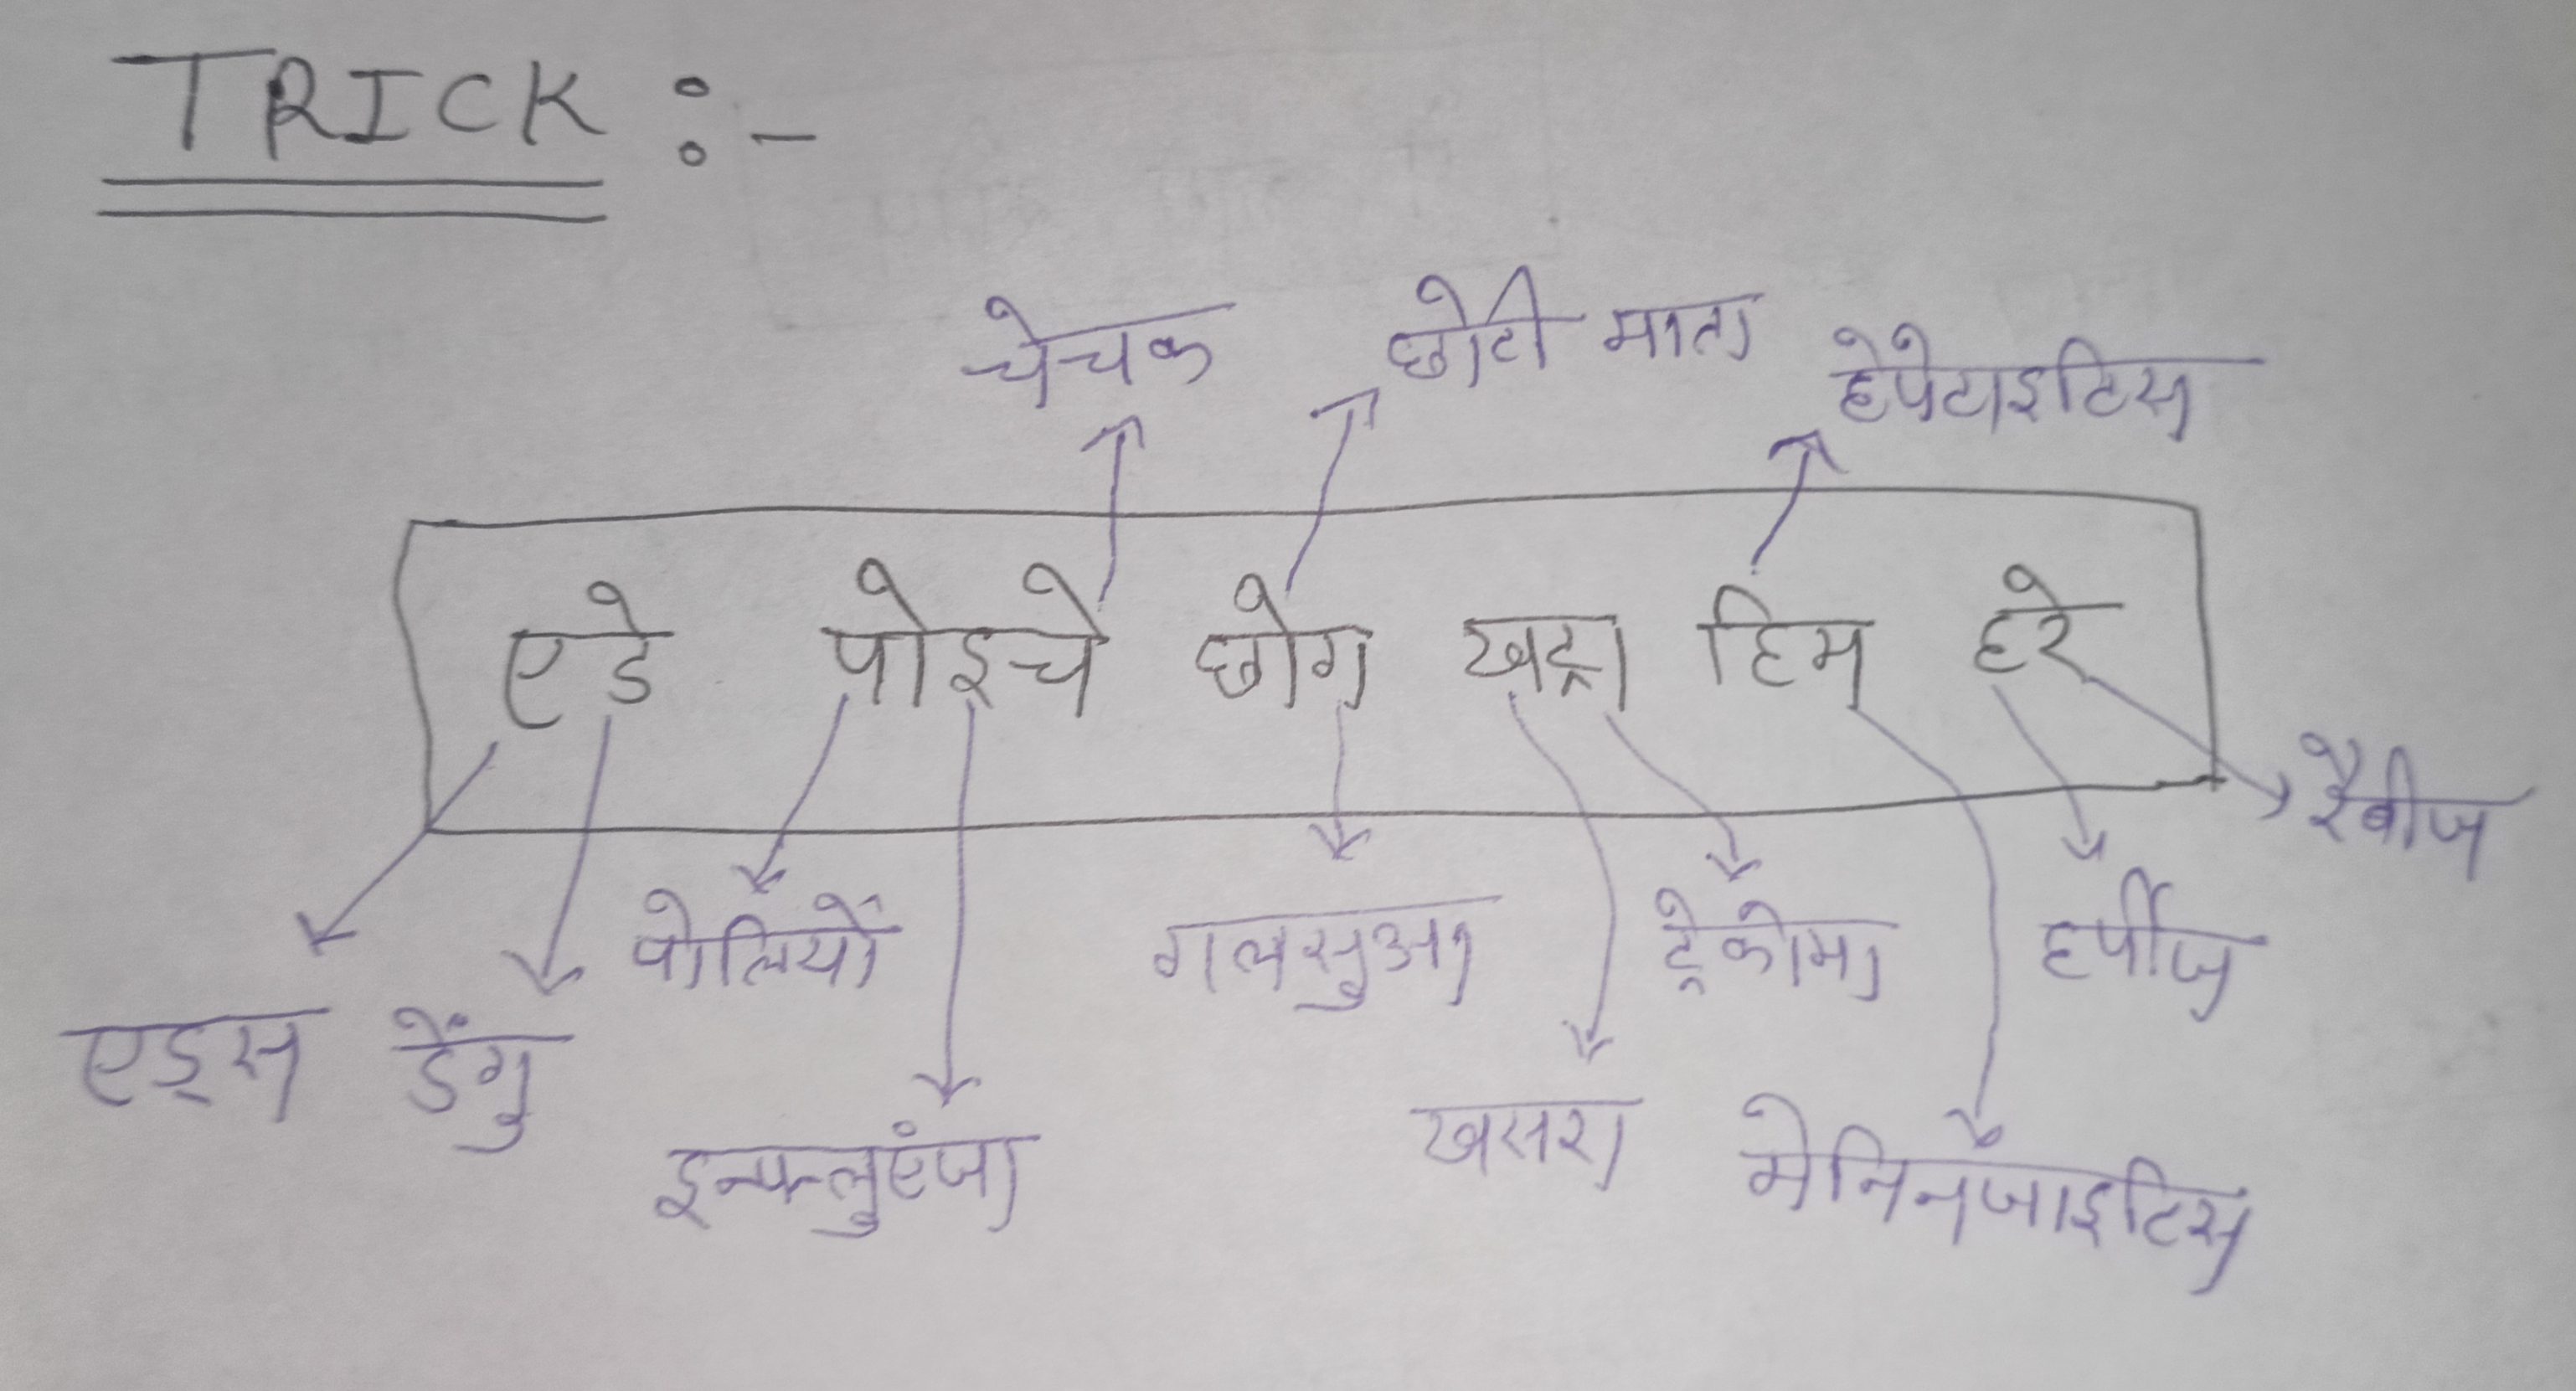 TRICK :-
चेचक छोटी माता हेपेटाइटिस
एडे पोइचे छोग खट्रा हिम हरे
रैबीज
पोलियों गलसुआ ट्रेकोमा हर्पीज
एड्स डेंगु
इन्फ्लुएंजा खसरा मेनिनजाइटिस